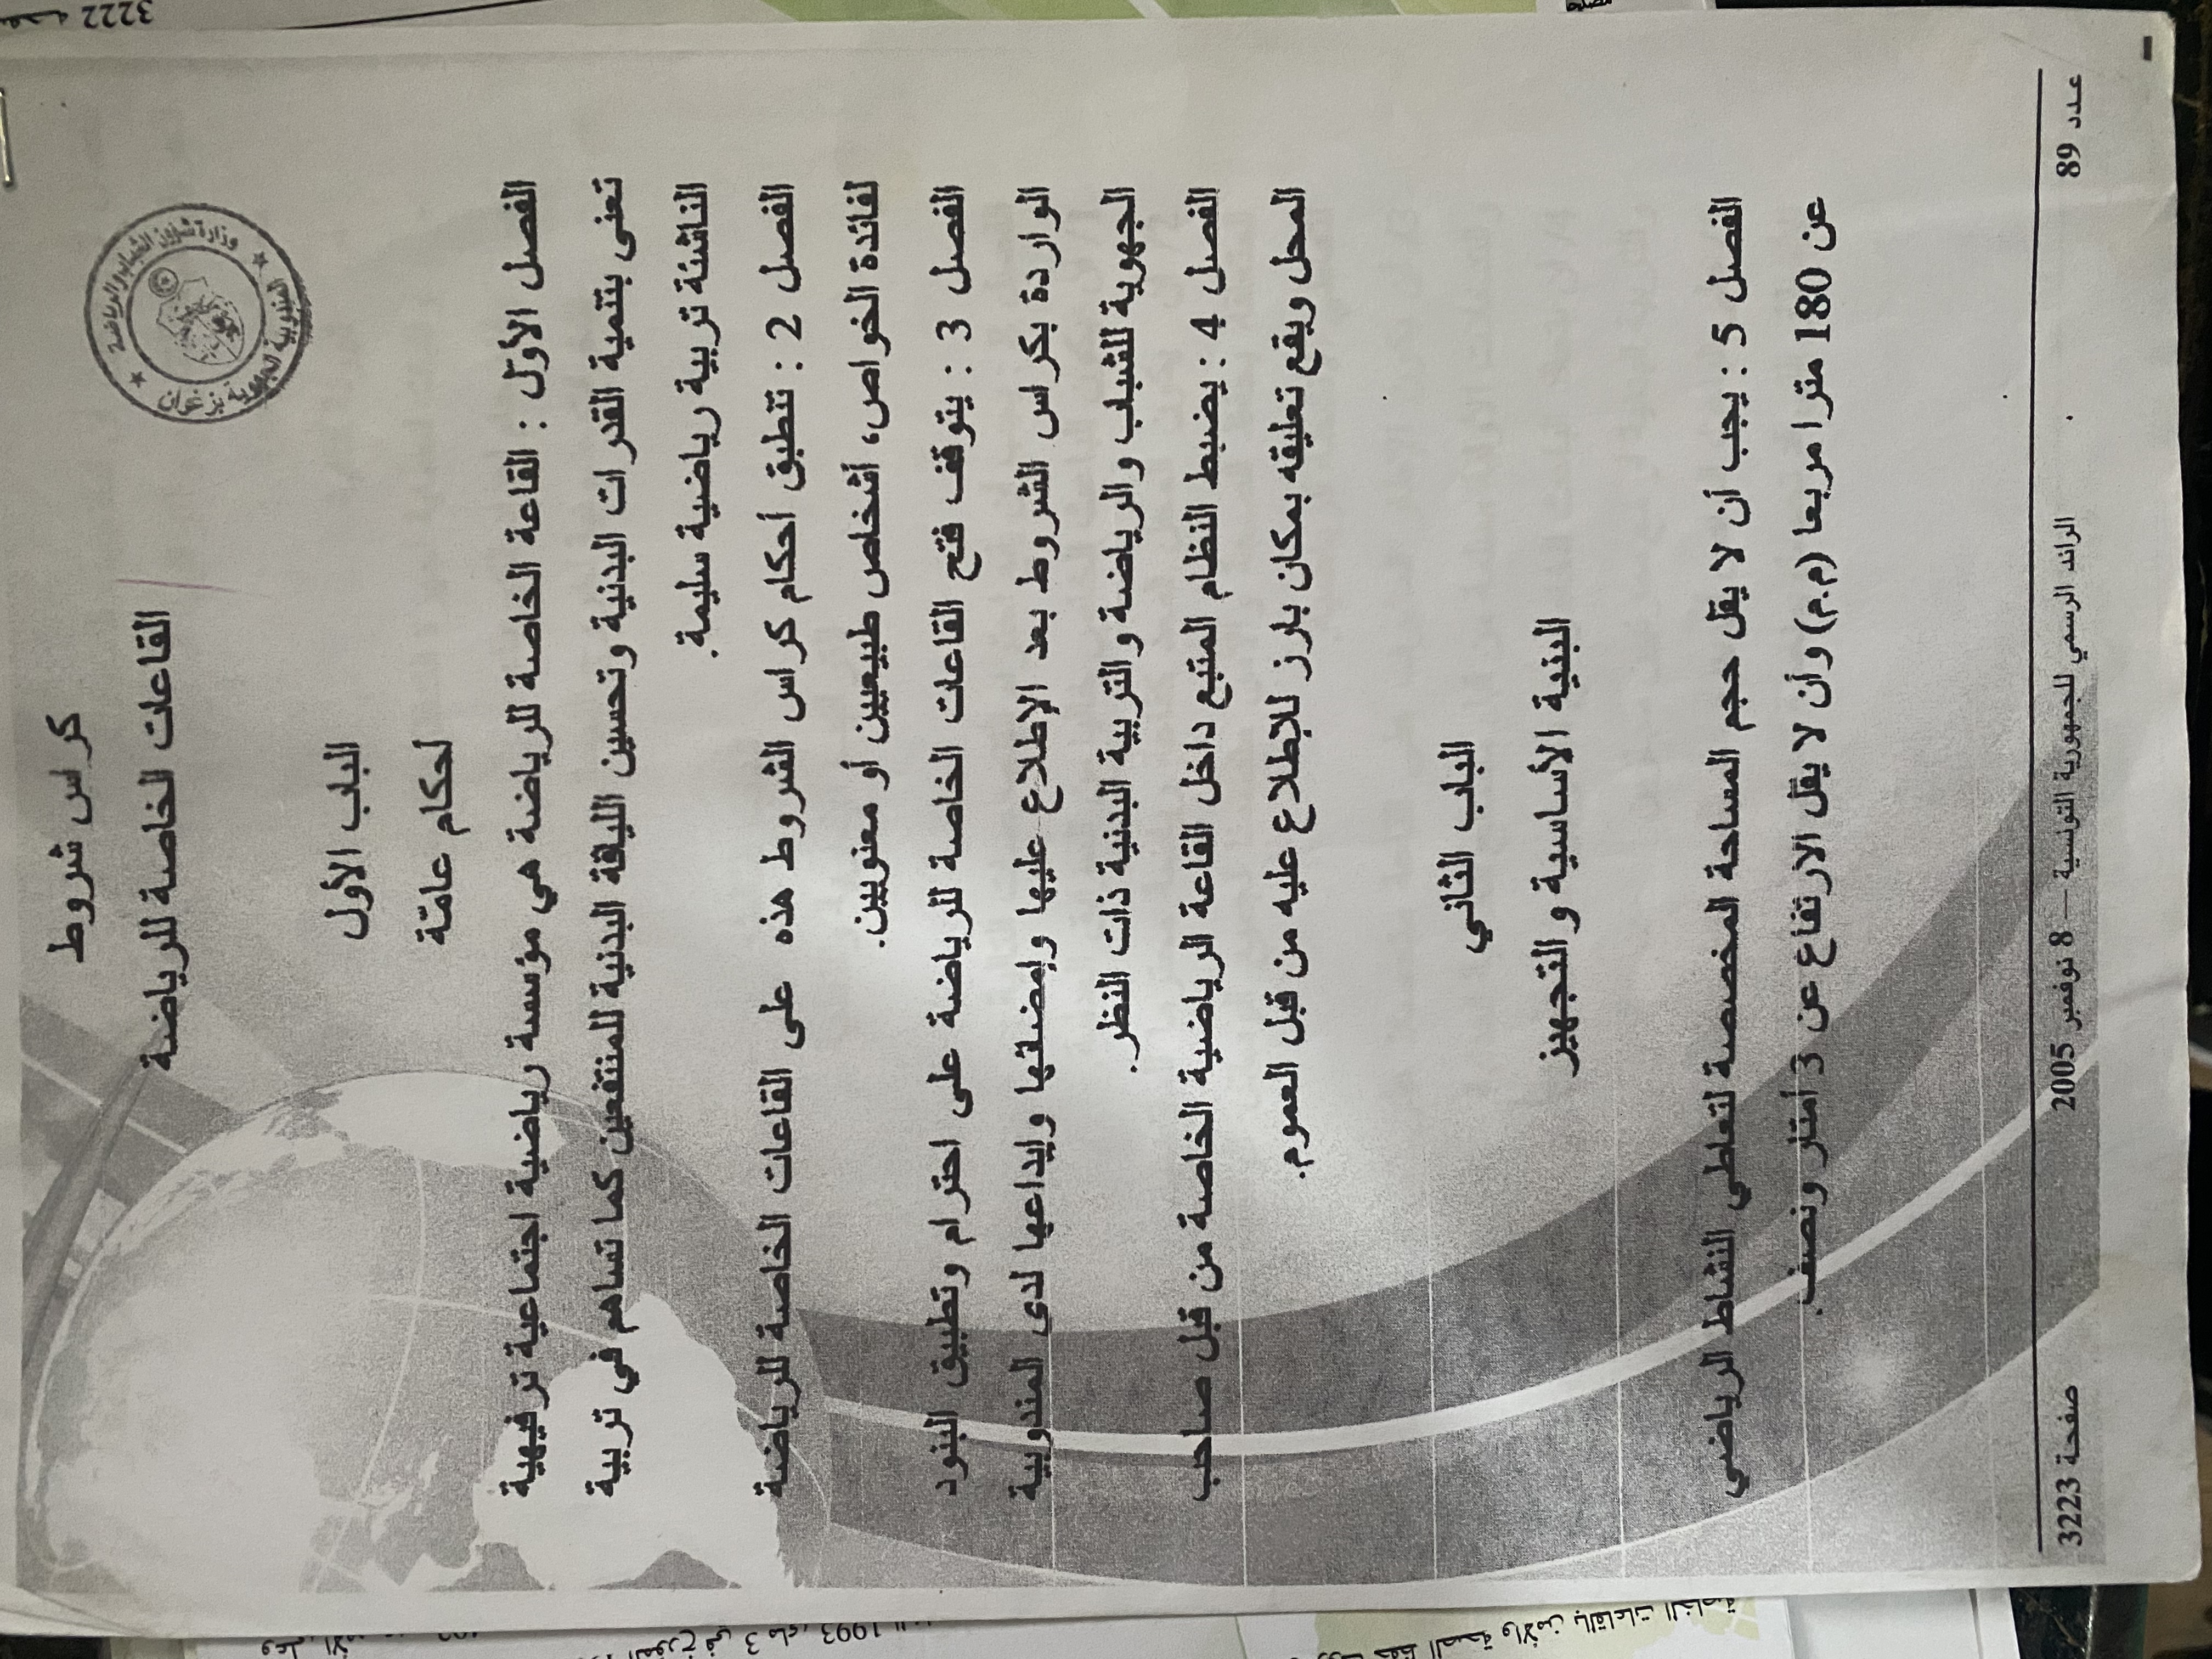 كراس شروط
القاعات الخاصة للرياضة
وزارة شؤون الشباب والرياضة
المندوبية الجهوية بزغوان
الباب الأول
أحكام عامّة
الفصل الأوّل : القاعة الخاصة للرياضة هي مؤسسة رياضية اجتماعية ترفيهية
تعنى بتنمية القدرات البدنية وتحسين اللياقة البدنية للمنتفعين كما تساهم في تربية
الناشئة تربية رياضية سليمة.
الفصل 2 : تنطبق أحكام كراس الشروط هذه على القاعات الخاصة للرياضة
لفائدة الخواص، أشخاص طبيعيين أو معنويين.
الفصل 3 : يتوقف فتح القاعات الخاصة للرياضة على احترام وتطبيق البنود
الواردة بكراس الشروط بعد الإطلاع عليها وإمضائها وإيداعها لدى المندوبية
الجهوية للشباب والرياضة والتربية البدنية ذات النظر.
الفصل 4 : يضبط النظام المتبع داخل القاعة الرياضية الخاصة من قبل صاحب
المحل ويقع تعليقه بمكان بارز للإطلاع عليه من قبل العموم.
الباب الثاني
البنية الأساسية و التجهيز
الفصل 5 : يجب أن لا يقل حجم المساحة المخصصة لتعاطي النشاط الرياضي
عن 180 مترا مربعا (م.م) وأن لا يقل الارتفاع عن 3 أمتار ونصف.
عدد 89 الرائد الرسمي للجمهورية التونسية — 8 نوفمبر 2005 صفحة 3223
3222